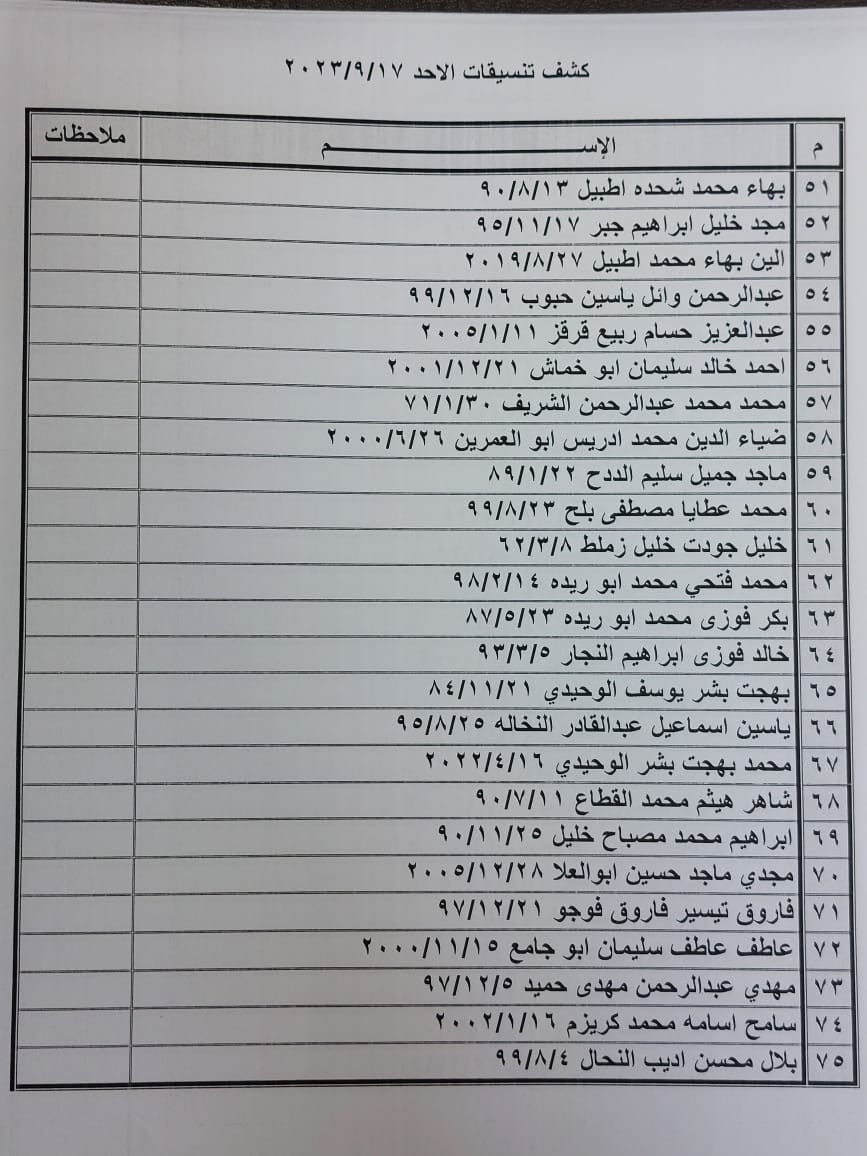 كشف تنسيقات الاحد ٢٠٢٣/٩/١٧
م الإســـــــم ملاحظات
٥١ بهاء محمد شحده اطبيل ٩٠/٨/١٣
٥٢ مجد خليل ابراهيم جبر ٩٥/١١/١٧
٥٣ الين بهاء محمد اطبيل ٢٠١٩/٨/٢٧
٥٤ عبدالرحمن وائل ياسين حبوب ٩٩/١٢/١٦
٥٥ عبدالعزيز حسام ربيع قرقز ٢٠٠٥/١/١١
٥٦ احمد خالد سليمان ابو خماش ٢٠٠١/١٢/٢١
٥٧ محمد محمد عبدالرحمن الشريف ٧١/١/٣٠
٥٨ ضياء الدين محمد ادريس ابو العمرين ٢٠٠٠/٦/٢٦
٥٩ ماجد جميل سليم الددح ٨٩/١/٢٢
٦٠ محمد عطايا مصطفى بلح ٩٩/٨/٢٣
٦١ خليل جودت خليل زملط ٦٢/٣/٨
٦٢ محمد فتحي محمد ابو ريده ٩٨/٢/١٤
٦٣ بكر فوزى محمد ابو ريده ٨٧/٥/٢٣
٦٤ خالد فوزى ابراهيم النجار ٩٣/٣/٥
٦٥ بهجت بشر يوسف الوحيدي ٨٤/١١/٢١
٦٦ ياسين اسماعيل عبدالقادر النخاله ٩٥/٨/٢٥
٦٧ محمد بهجت بشر الوحيدي ٢٠٢٢/٤/١٦
٦٨ شاهر هيثم محمد القطاع ٩٠/٧/١١
٦٩ ابراهيم محمد مصباح خليل ٩٠/١١/٢٥
٧٠ مجدي ماجد حسين ابوالعلا ٢٠٠٥/١٢/٢٨
٧١ فاروق تيسير فاروق فوجو ٩٧/١٢/٢١
٧٢ عاطف عاطف سليمان ابو جامع ٢٠٠٠/١١/١٥
٧٣ مهدي عبدالرحمن مهدى حميد ٩٧/١٢/٥
٧٤ سامح اسامه محمد كريزم ٢٠٠٢/١/١٦
٧٥ بلال محسن اديب النحال ٩٩/٨/٤